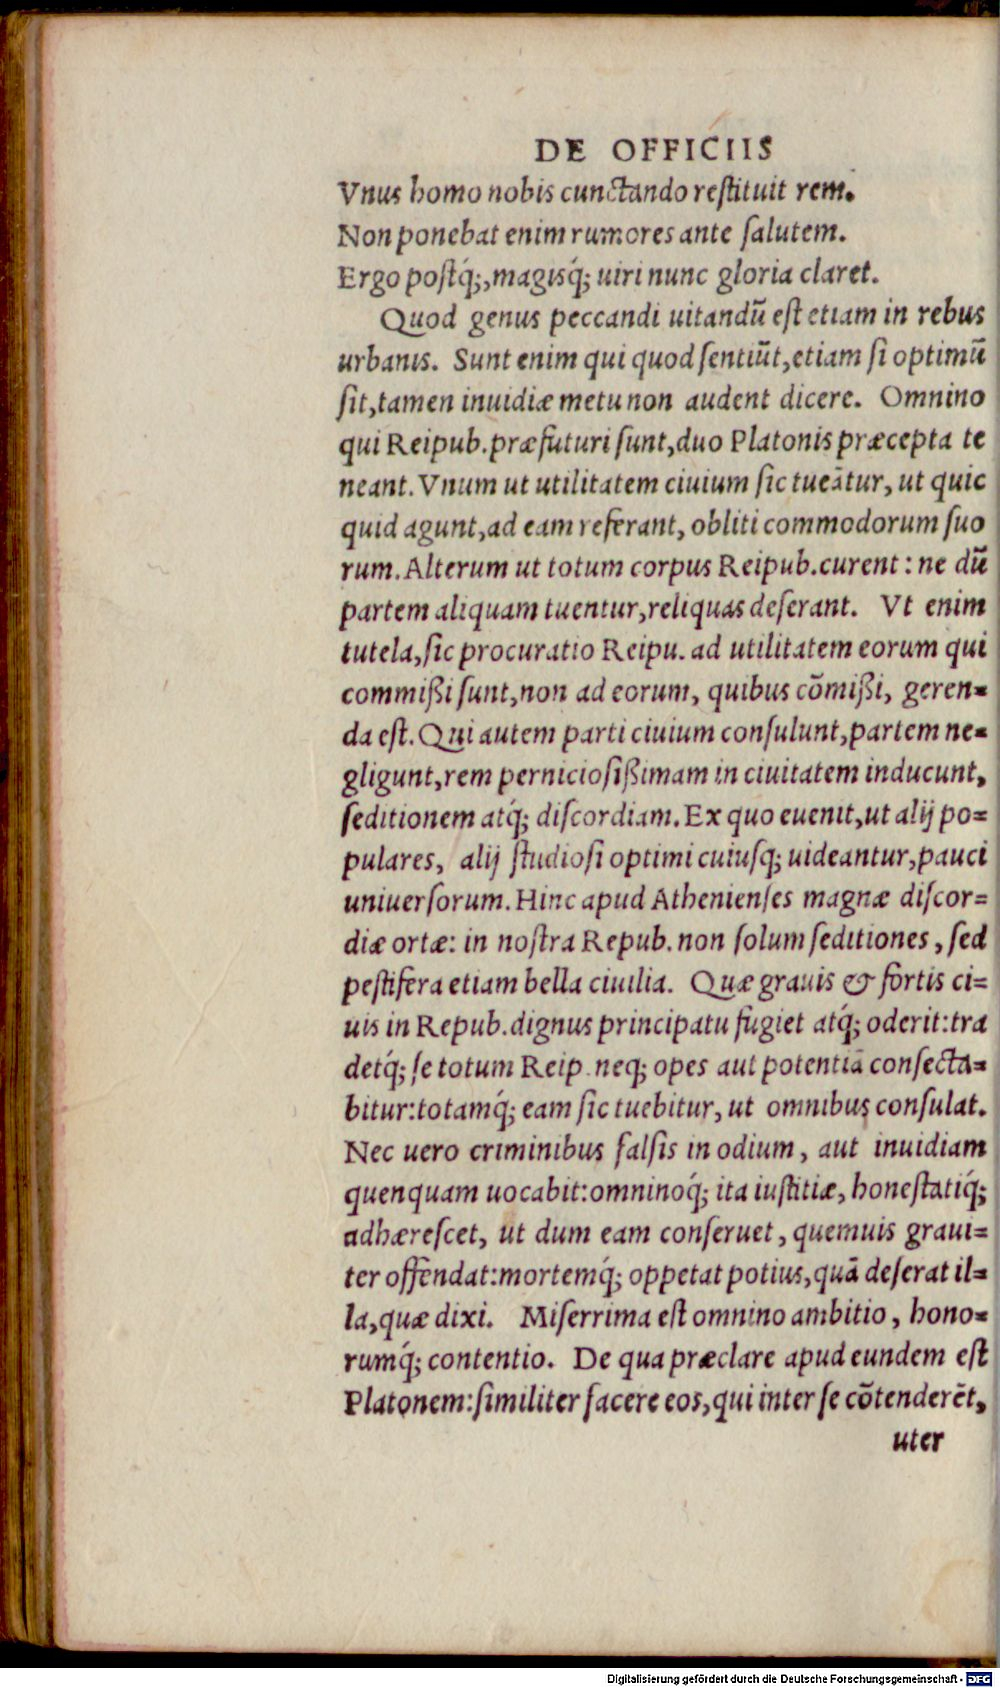 DE OFFICIIS
Vnus homo nobis cunctando reſtituit rem.
Non ponebat enim rumores ante ſalutem.
Ergo poſtq́;, magisq́; uiri nunc gloria claret.
Quod genus peccandi uitandū eſt etiam in rebus
urbanis. Sunt enim qui quod ſentiūt, etiam ſi optimū
ſit, tamen inuidiæ metu non audent dicere. Omnino
qui Reipub. præfuturi ſunt, duo Platonis præcepta te
neant. Vnum ut utilitatem ciuium ſic tueātur, ut quic
quid agunt, ad eam referant, obliti commodorum ſuo
rum. Alterum ut totum corpus Reipub. curent: ne dū
partem aliquam tuentur, reliquas deſerant. Vt enim
tutela, ſic procuratio Reipu. ad utilitatem eorum qui
commißi ſunt, non ad eorum, quibus cōmißi, geren-
da eſt. Qui autem parti ciuium conſulunt, partem ne-
gligunt, rem pernicioſißimam in ciuitatem inducunt,
ſeditionem atq́; diſcordiam. Ex quo euenit, ut alij po-
pulares, alij ſtudioſi optimi cuiuſq; uideantur, pauci
uniuerſorum. Hinc apud Athenienſes magnæ diſcor-
diæ ortæ: in noſtra Repub. non ſolum ſeditiones, ſed
peſtifera etiam bella ciuilia. Quæ grauis & fortis ci-
uis in Repub. dignus principatu fugiet atq́; oderit: tra
detq́; ſe totum Reip. neq; opes aut potentiā conſecta-
bitur: totamq́; eam ſic tuebitur, ut omnibus conſulat.
Nec uero criminibus falſis in odium, aut inuidiam
quenquam uocabit: omninoq́; ita iuſtitiæ, honeſtatiq́;
adhæreſcet, ut dum eam conſeruet, quemuis graui-
ter offendat: mortemq́; oppetat potius, quā deſerat il-
la, quæ dixi. Miſerrima eſt omnino ambitio, hono-
rumq́; contentio. De qua præclare apud eundem eſt
Platonem: ſimiliter facere eos, qui inter ſe cōtenderēt,
uter
Digitalisierung gefördert durch die Deutsche Forschungsgemeinschaft - DFG